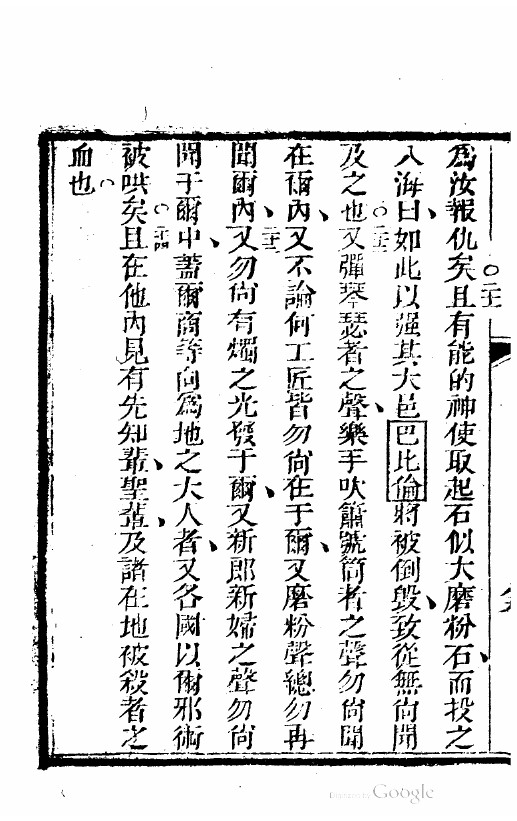 為汝報仇矣且有能的神使取起石似大磨粉石而投之
入海曰如此以强其大邑巴比倫將被倒毀致從無尚聞
及之也又彈琴瑟者之聲樂手吹簫號筒者之聲勿尚聞
在爾內又不論何工匠皆勿尚在于爾又磨粉聲總勿再
聞爾內又勿尚有燭之光發于爾又新郎新婦之聲勿尚
聞于爾中蓋爾商等向為地之大人者又各國以爾邪術
被哄矣且在他內見有先知輩聖輩及諸在地被殺者之
血也
Digitized by Google